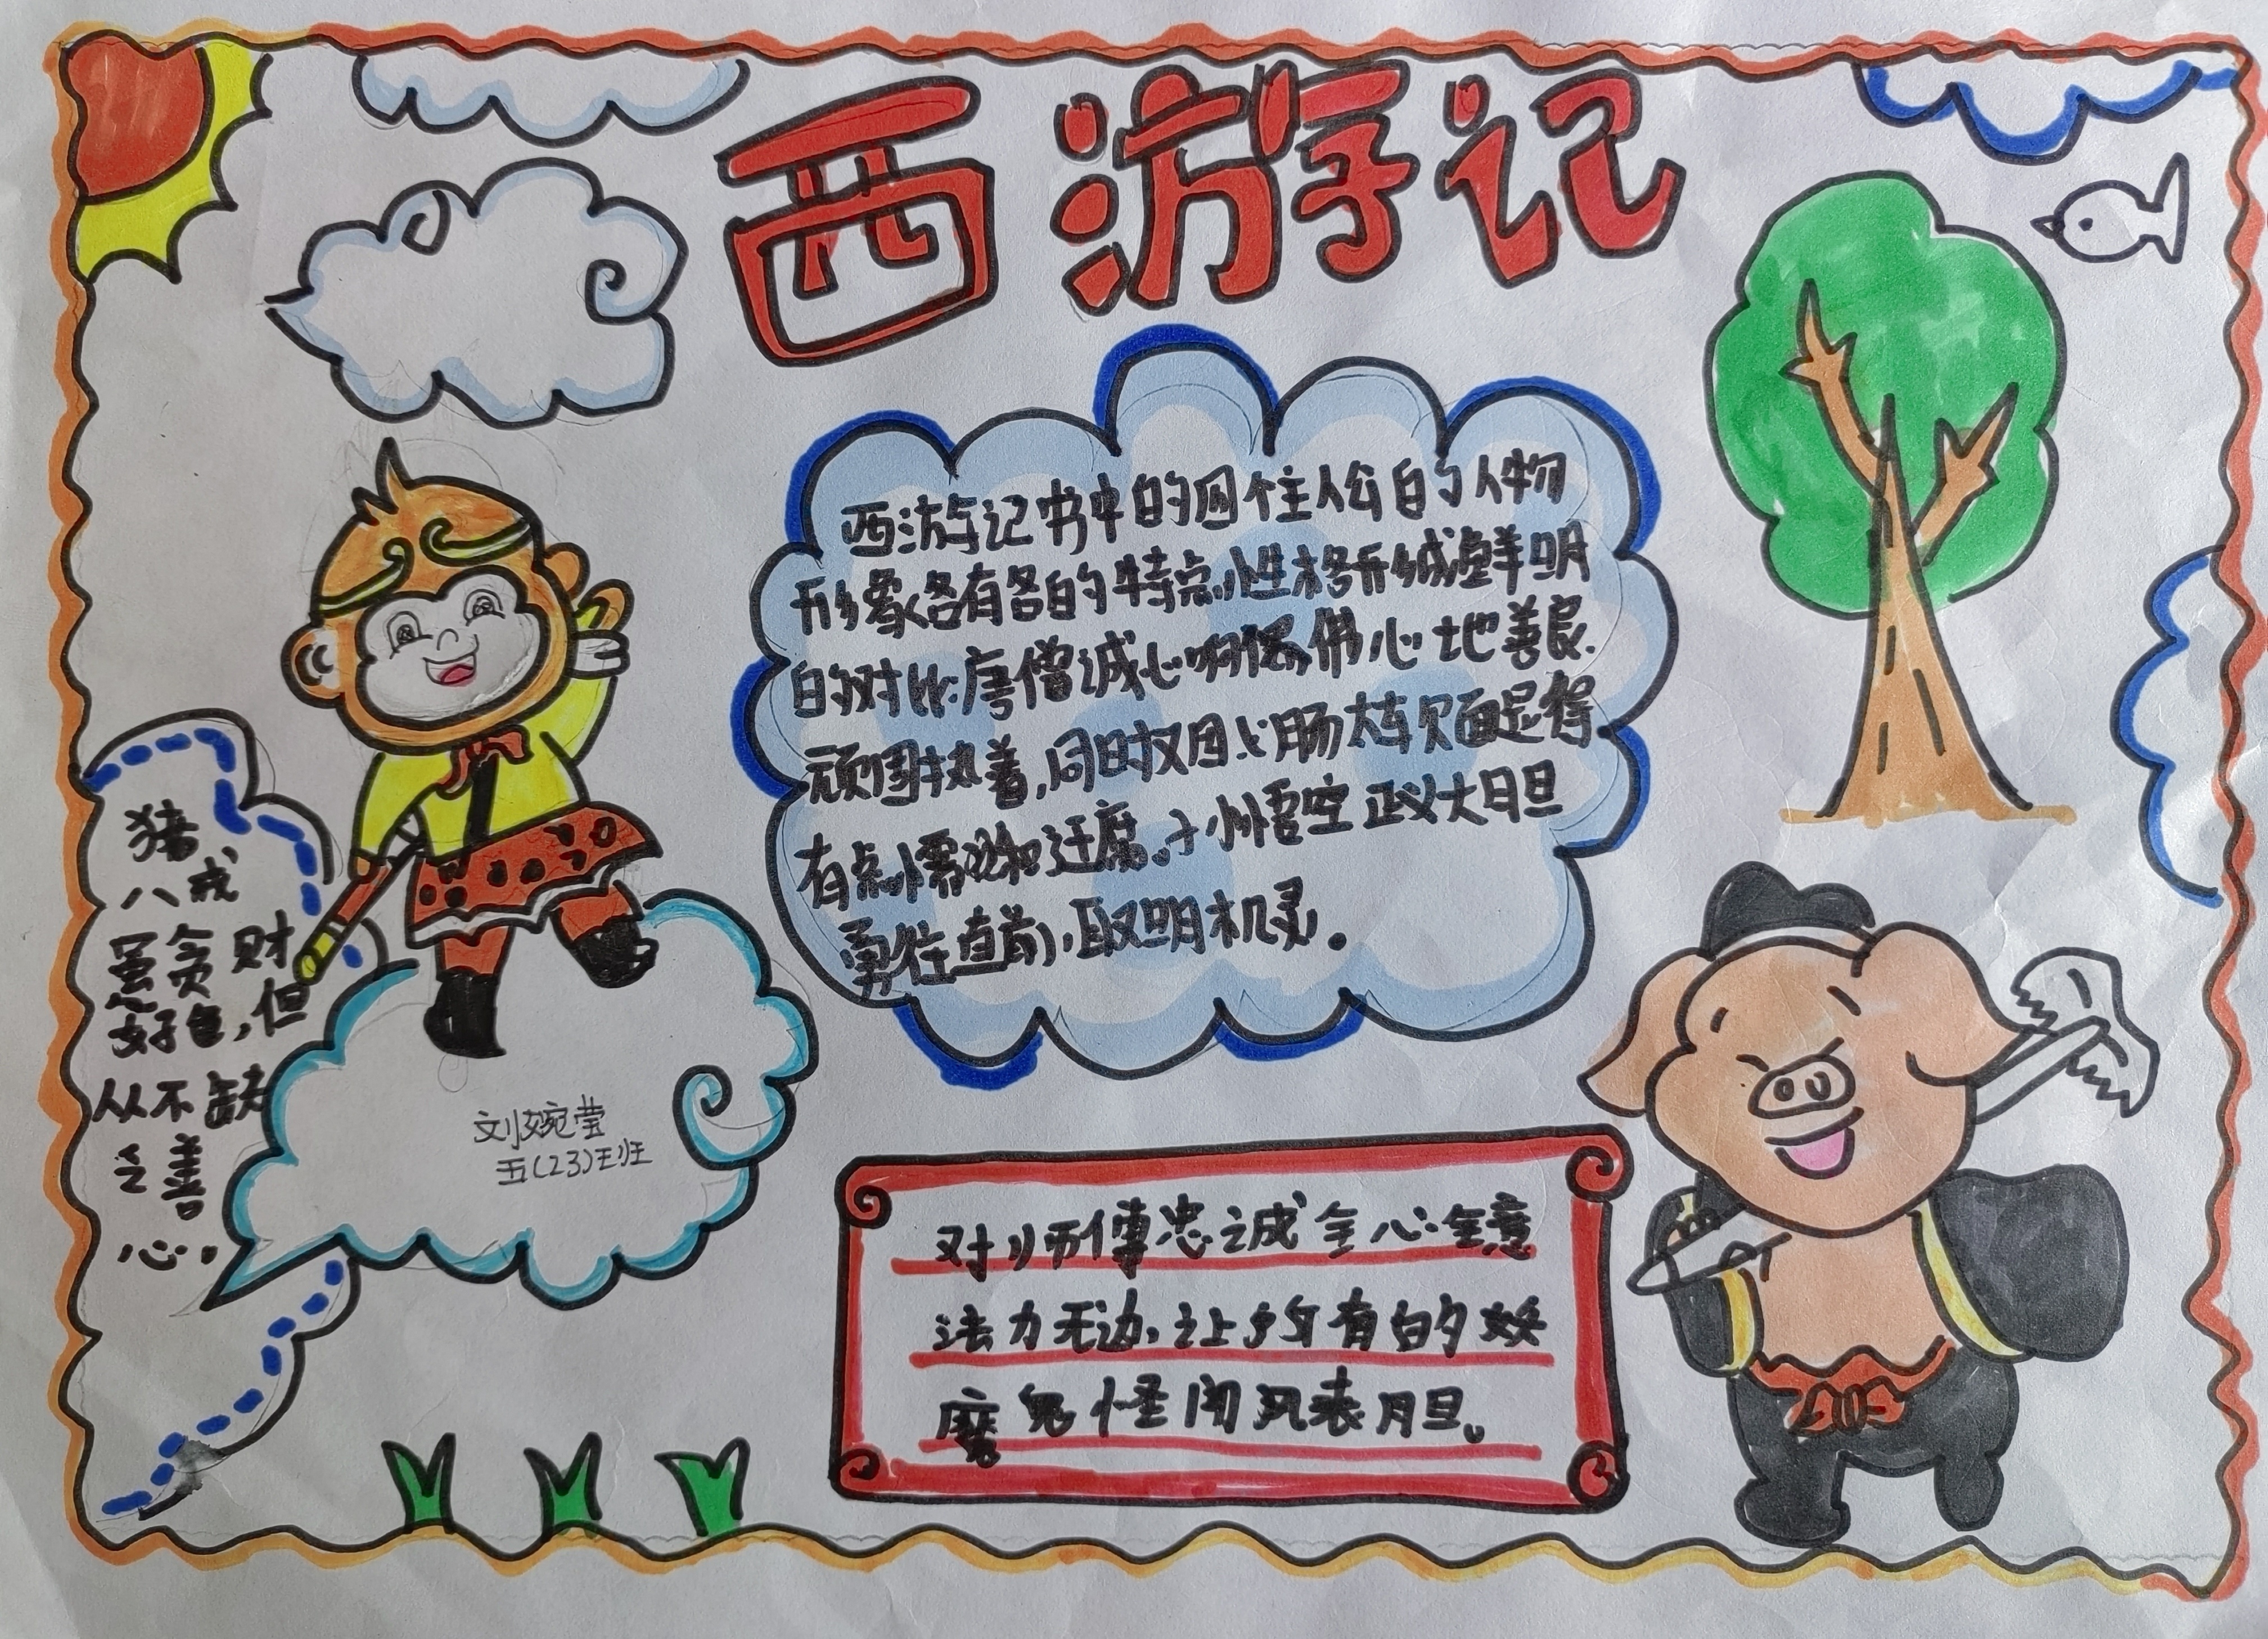 西游记
西游记书中的四个主人公的人物
形象各有各的特点,性格形成鲜明
的对比.唐僧诚心向佛 心地善良.
顽固执着,同时仅因心肠太软而显得
有点懦弱和迂腐。孙悟空正义大胆
勇往直前,聪明机灵。
猪
八戒
虽贪财
好色,但
从不缺
乏善
心.
刘婉莹
五(23)班
对师傅忠诚 全心全意
法力无边,让所有的妖
魔鬼怪闻风丧胆。